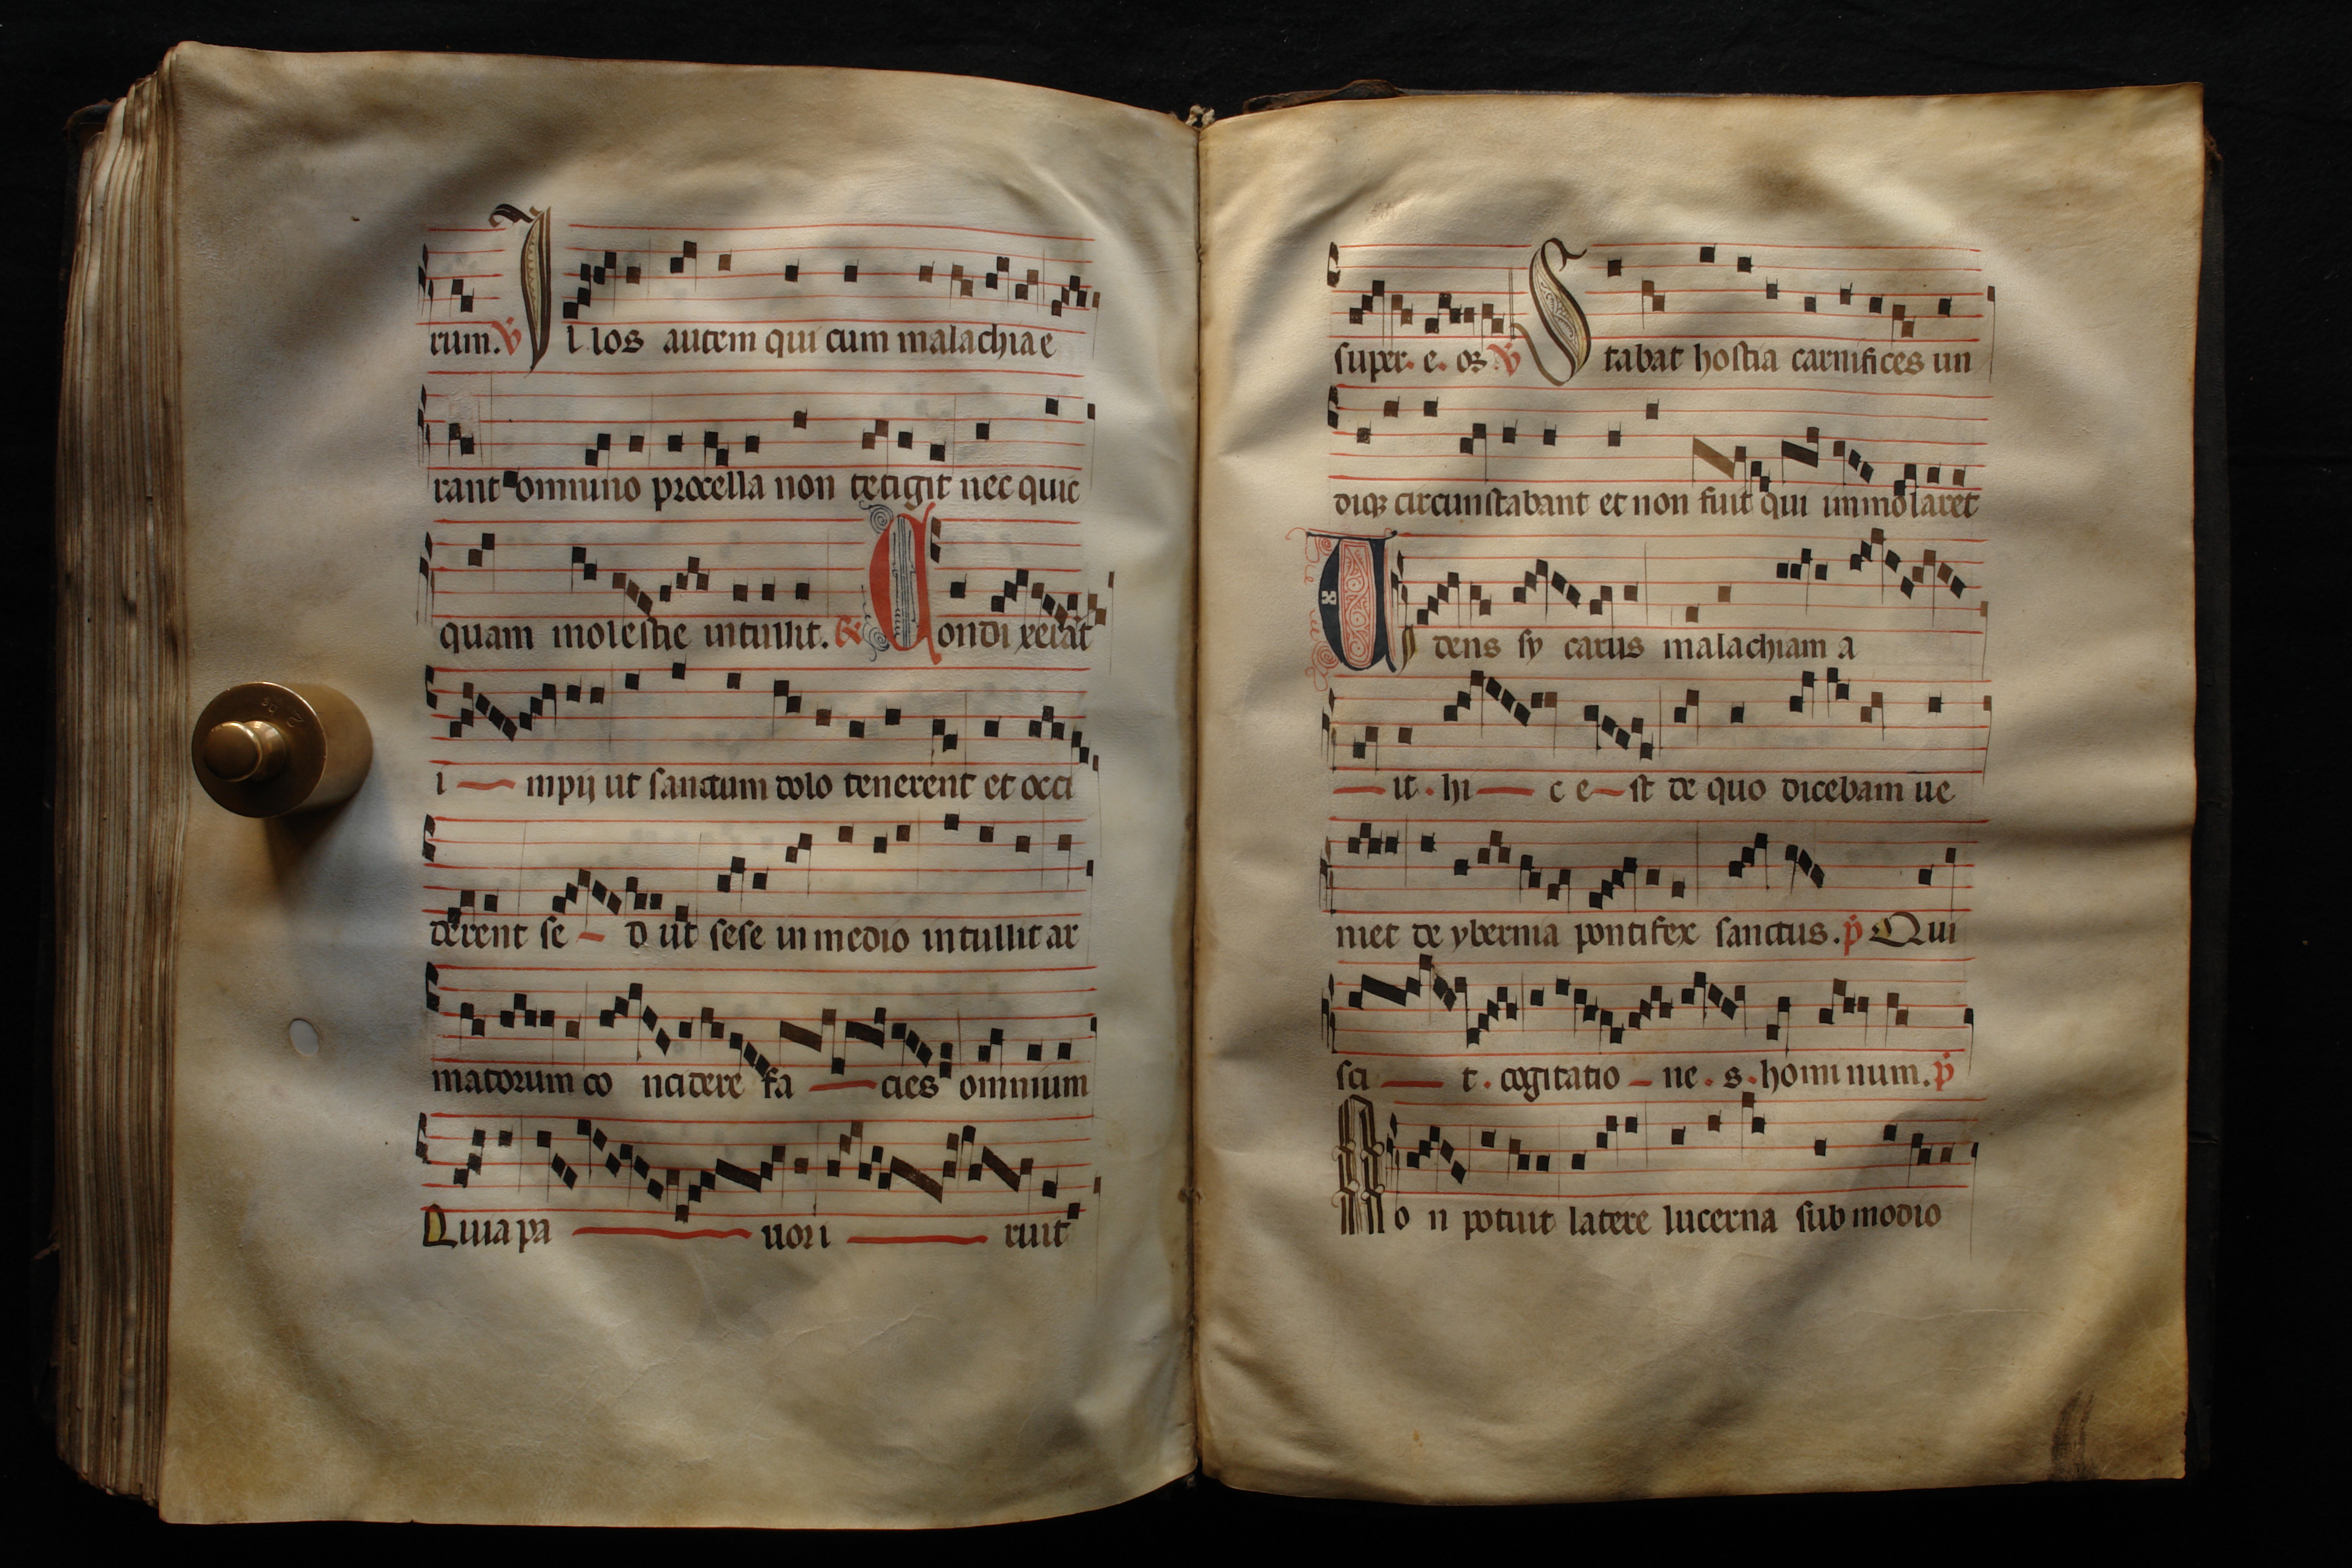 rum. ℣ Illos autem qui cum malachia e
rant omnino procella non tetigit nec quic
quam molestie intulit. ℟ Condixerat
i — mpij ut sanctum dolo tenerent et occi
derent se — d ut sese in medio intulit ar
matorum co ncidere fa — cies omnium
Quia pa — uori — ruit
super. e. oꝝ ℣ Stabat hostia carnifices un
diqꝫ circunstabant et non fuit qui immolaret
Uidens sy carus malachiam a
— it. hi — c e — st de quo dicebam ue
niet de ybernia pontifex sanctus. p̄ Qui
sci — t. cogitatio — ne. s. hominum. p̄
No n potuit latere lucerna sub modio